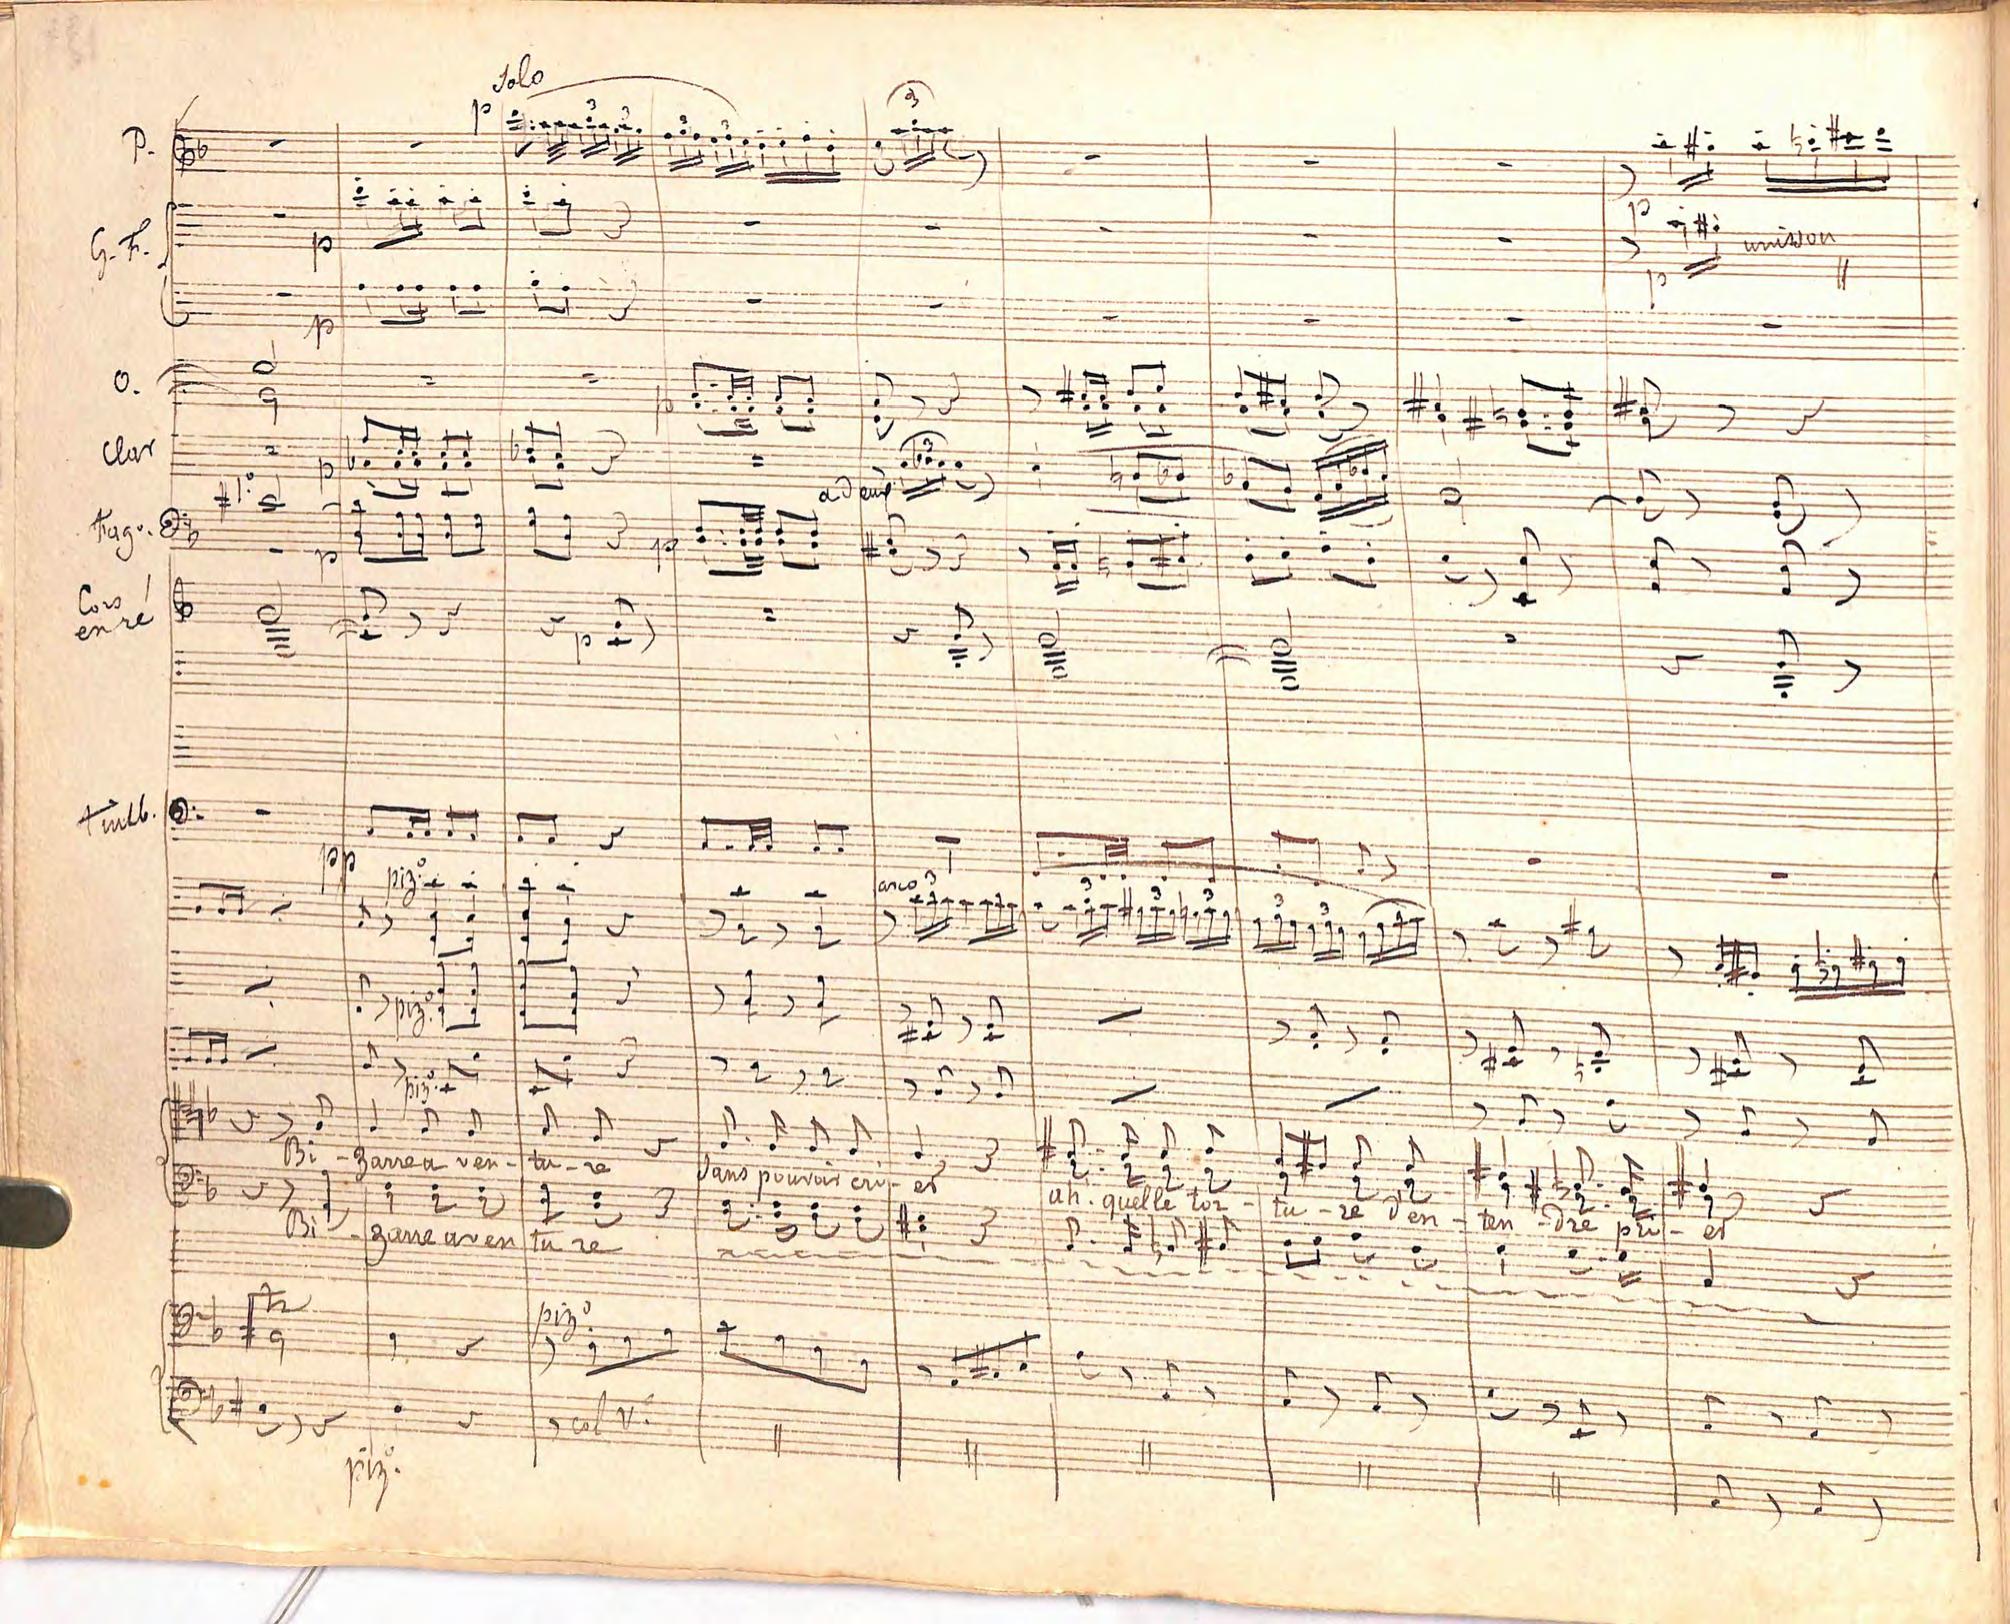 Solo
P.
p
3 3
3 3
3
G. F.
p
p
p
unison
p
O.
p
Clar
p
a deux
3
Fag.
p
p
Cors
en ré
p
Timb.
pp
piz.
arco 3
3 3 3
3 3
piz.
piz.
Bi - zarre a ven - tu - re
sans pouvoir cri - er
ah. quelle tor - tu - re d'en - ten - dre pri - er
Bi - zarre aven tu re
piz.
col V.
piz.